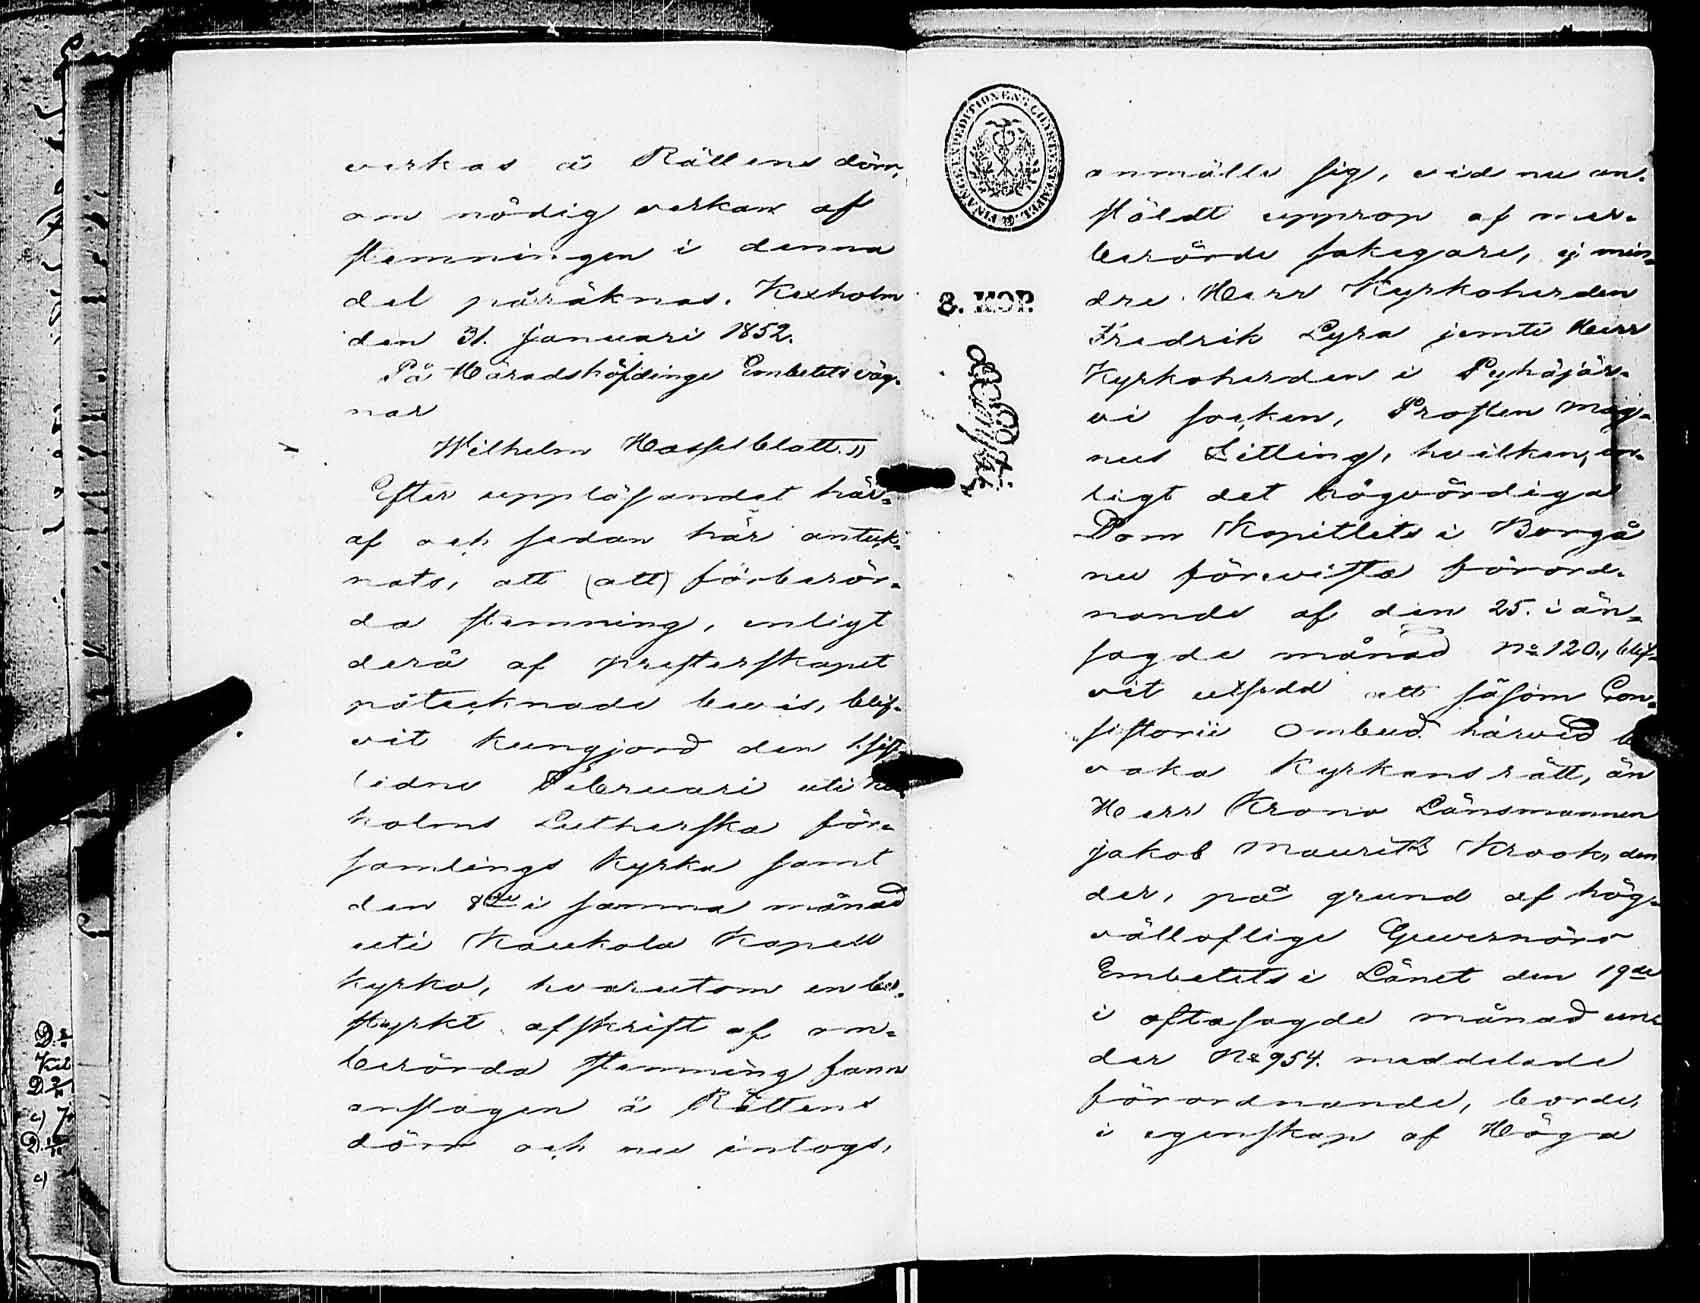 verkas å Rättens dörr,
om nödig verkan af
stemningen i denna
del påräknas. Kexholm
den 31. Januari 1852.
På Häradshöfdinge Embetets väg-
nar
Wilhelm Hasselblatt."
Efter uppläsandet här-
af och sedan här antek-
nats, att (att) förberör-
da stemning, enligt
derå af presterskapet
påtecknade bevis, blif-
vit kungjord den 1. sist-
lidne Februari uti Kex-
holms Lutherska för-
samlings Kyrka samt
den 8de i samma månad
uti Kaukola Kapell
kyrka, hvarutom en be-
styrkt afskrift af om-
berörda stemning fanns
anslagen å Rättens
dörr och nu intogs,
FINANCEEXPEDITIONENS CHARTÆSTEMPEL
8. KOP.
anmälte sig, vid nu an-
stäldt upprop af mer-
berörde sakegare, ej min-
dre Herr Kyrkoherden
Fredrik Lyra jemte Herr
Kyrkoherden i Pyhäjär-
vi socken, Prosten Mag-
nus Litling, hvilken, en-
ligt det högvördiga
Dom Kapitlets i Borgå
nu föreviste förord-
nande af den 25. i än-
sagde månad No 120., blif-
vit utsedd att såsom Con-
sistorii Ombud härvid be-
vaka Kyrkans rätt, än
Herr Krono Länsmannen
Jakob Mauritz Krook, den
der, på grund af hög-
välloflige Guvernörs
Embetets i Länet den 19de
i oftasagde månad un-
der No 954. meddelade
förordnande, borde,
i egenskap af Höga